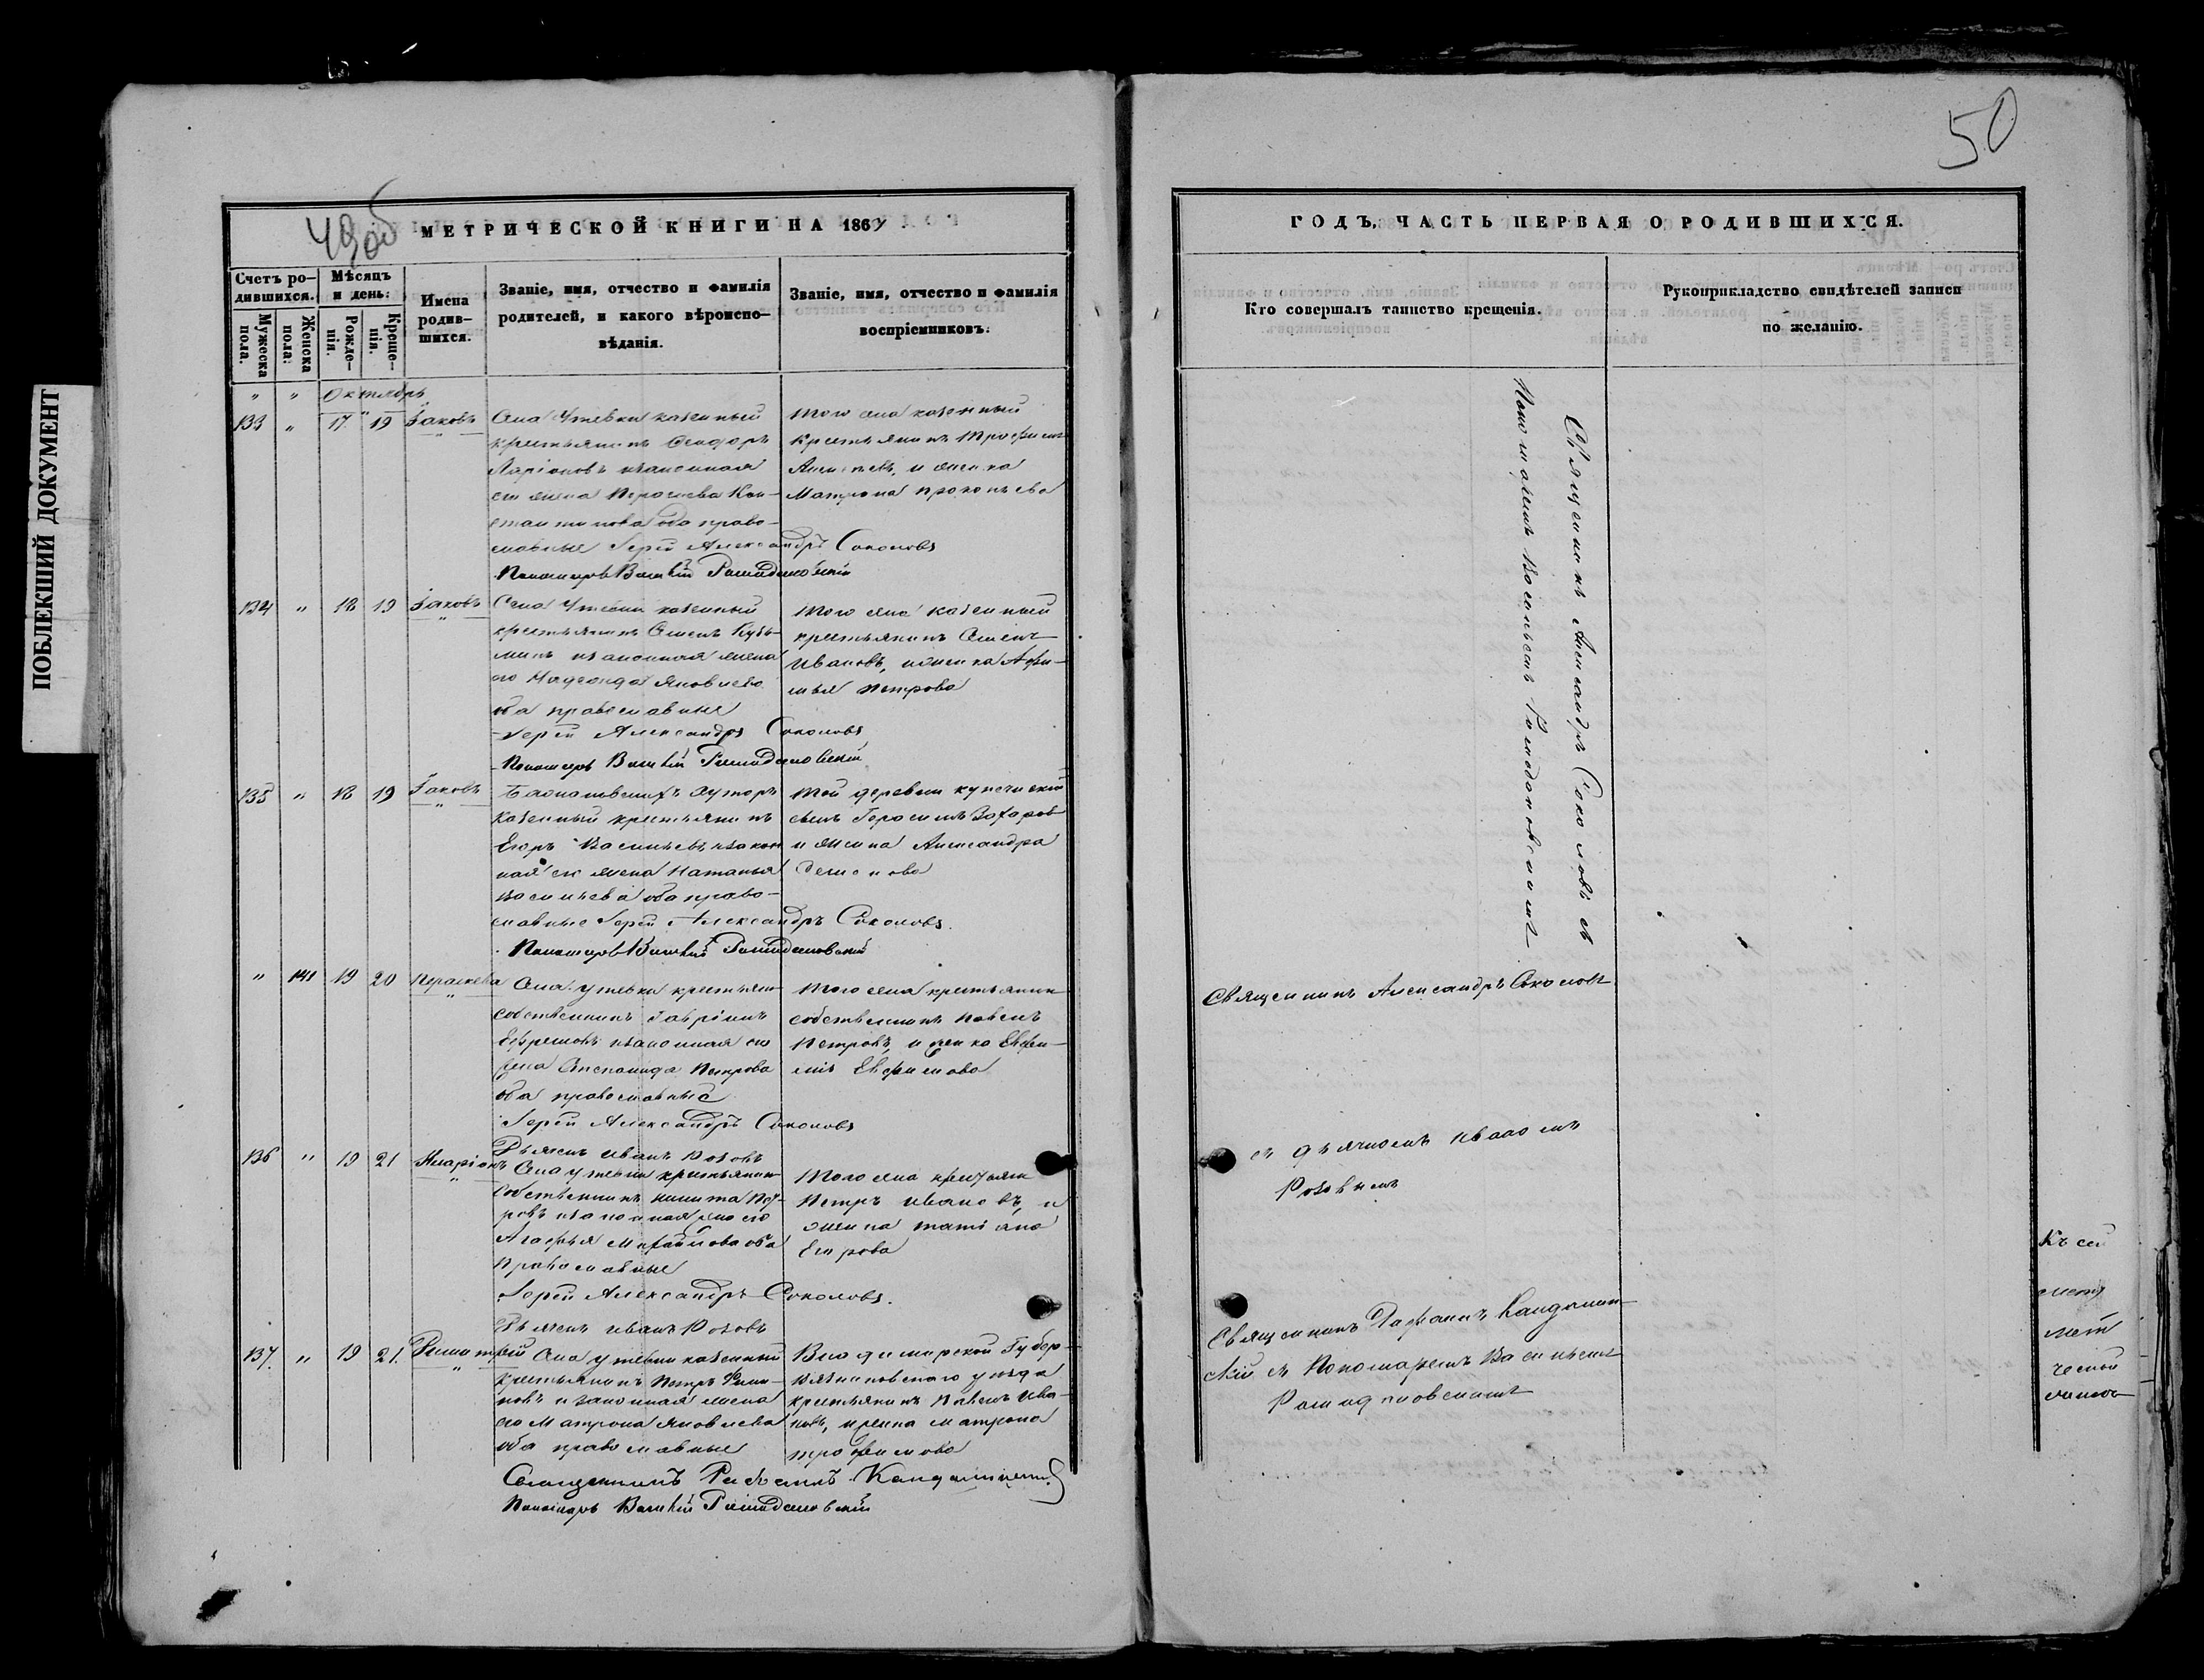 ПОБЛЕКШИЙ ДОКУМЕНТ
49об
МЕТРИЧЕСКОЙ КНИГИ НА 1869
Счетъ ро-
дившихся.
Мужеска пола.
Женска пола.
Мѣсяцъ
и день:
Рожде-
нія.
Креще-
нія.
Имена
родив-
шихся.
Званіе, имя, отчество и фамилія
родителей, и какого вѣроиспо-
вѣданія.
Званіе, имя, отчество и фамилія
воспріемниковъ.
" " Октябрь
133 " 17 19 Іаковъ
Села Утевки казенный
крестьянинъ Ѳеодоръ
Ларіоновъ изаконная
его жена Параскева Кон-
стантинова оба право-
славные Іерей Александръ Соколовъ
Пономарь Василій Рамодановскій
Того села казенный
крестьянинъ Трофимъ
Алексѣевъ, и женка
Матрона Прокопьева
134 " 18 19 Іаковъ
Села Утевки казенный
крестьянинъ Симеонъ Кузь-
минъ изаконная жена
его Надежда Яковлева
оба православные
Іерей Александръ Соколовъ
Пономарь Василій Рамодановскій
Того села казенный
крестьянинъ Семенъ
Ивановъ, иженка Афи-
мья Петрова
135 " 18 19 Іаковъ
хуторъ
казенный крестьянинъ
Егоръ Васильевъ изакон
ная его жена Наталья
Васильева оба право-
славные Іерей Александръ Соколовъ.
Пономарь Василій Рамодановскій
Той деревни купеческій
сынъ Герасимъ Захаровъ
и женка Александра
Семенова
" 141 19 20 Параскева
Села Утевки крестьян
собственникъ Гавріилъ
Ефремовъ изаконная его
жена Степанида Петрова
оба православные
Іерей Александръ Соколовъ
Дьячекъ Иванъ Розовъ
Того села крестьянин
собственникъ Павелъ
Петровъ, и женка Евфи-
мія Евфимова
136 " 19 21 Иларіонъ
Села Утевки крестьянин
собственникъ Никита Пет-
ровъ изаконная жена его
Агафья Михайлова оба
Православные
Іерей Александръ Соколовъ.
Дьячекъ Иванъ Розовъ
Того села крестьян
Петръ Ивановъ, и
женка Татіана
Егорова
137. " 19 21. Димитрій
Села Утевки казенный
крестьянинъ Петръ Фили-
повъ изаконная жена
его Матрона Яковлева
оба православные
Священникъ Рафаилъ
Пономарь Василій Рамодановскій
Владимирской Губер-
Вязниковскаго уѣзда
крестьянинъ Павелъ Ива-
новъ, иженка Матрона
Трофимова
50
ГОДЪ, ЧАСТЬ ПЕРВАЯ О РОДИВШИХСЯ.
Кто совершалъ таинство крещенія.
Рукоприкладство свидѣтелей записи
по желанію.
Священникъ Александръ Соколовъ съ
Пономаремъ Васильемъ Рамодановскимъ
Священникъ Александръ Соколовъ
съ дьячкомъ Иваномъ
Розовымъ
Священникъ Рафаилъ
скій съ Пономаремъ Васильемъ
Рамодановскимъ
Къ сей
метр